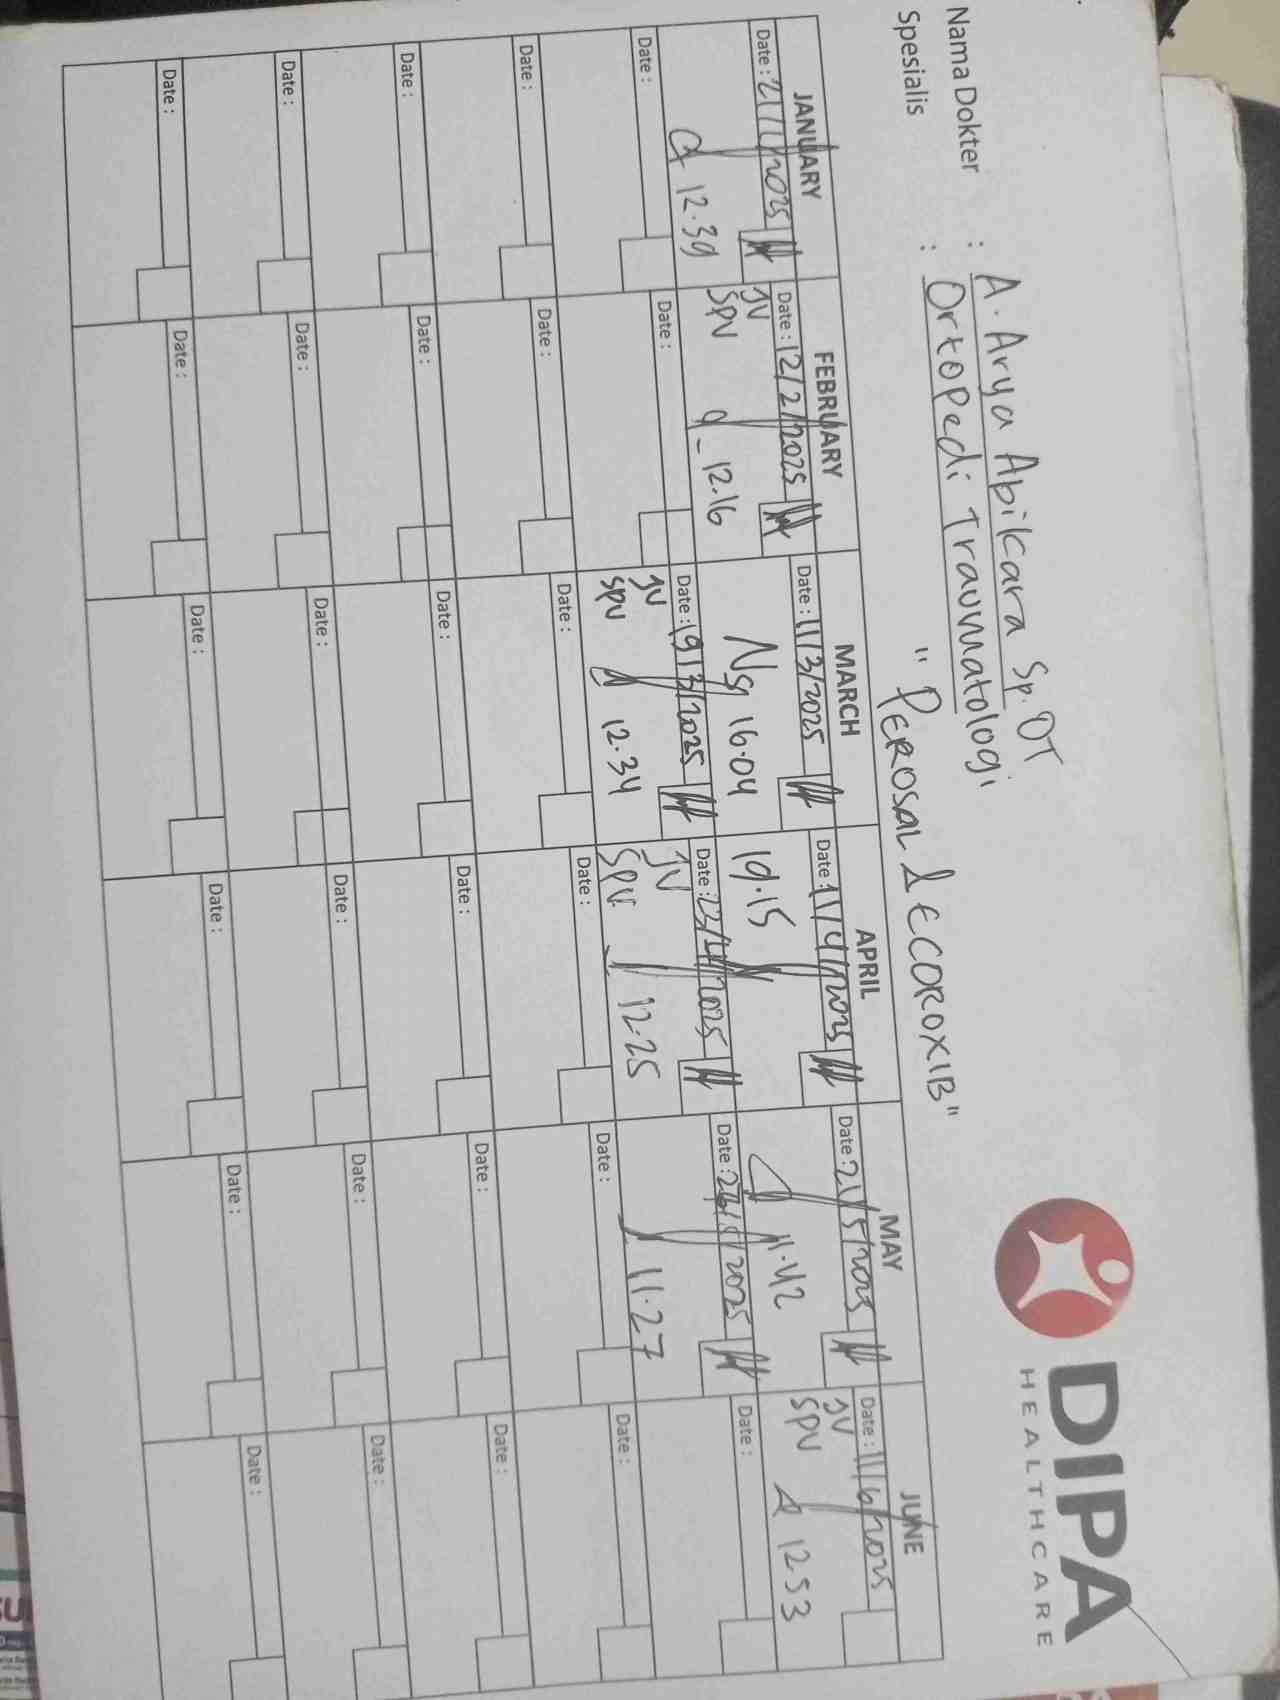 DIPA
HEALTHCARE
Nama Dokter : A. Arya Abikara Sp. OT
Spesialis : Ortopedi Traumatologi
" PEROSAL & ECOROXIB "
JANUARY FEBRUARY MARCH APRIL MAY JUNE
Date : 21/1/2025 Date : 12/2/2025 Date : 11/3/2025 Date : 11/4/2025 Date : 21/5/2025 Date : 11/6/2025
12.39
JV
SPV 12.16
16.04
19.15
11.42
JV
SPV 12 53
Date : Date : Date : 19/3/2025 Date : 23/4/2025 Date : 26/5/2025 Date :
JV
SPV 12.34
JV
SPV 12.25
11.27
Date : Date : Date : Date : Date : Date :
Date : Date : Date : Date : Date : Date :
Date : Date : Date : Date : Date : Date :
Date : Date : Date : Date : Date : Date :